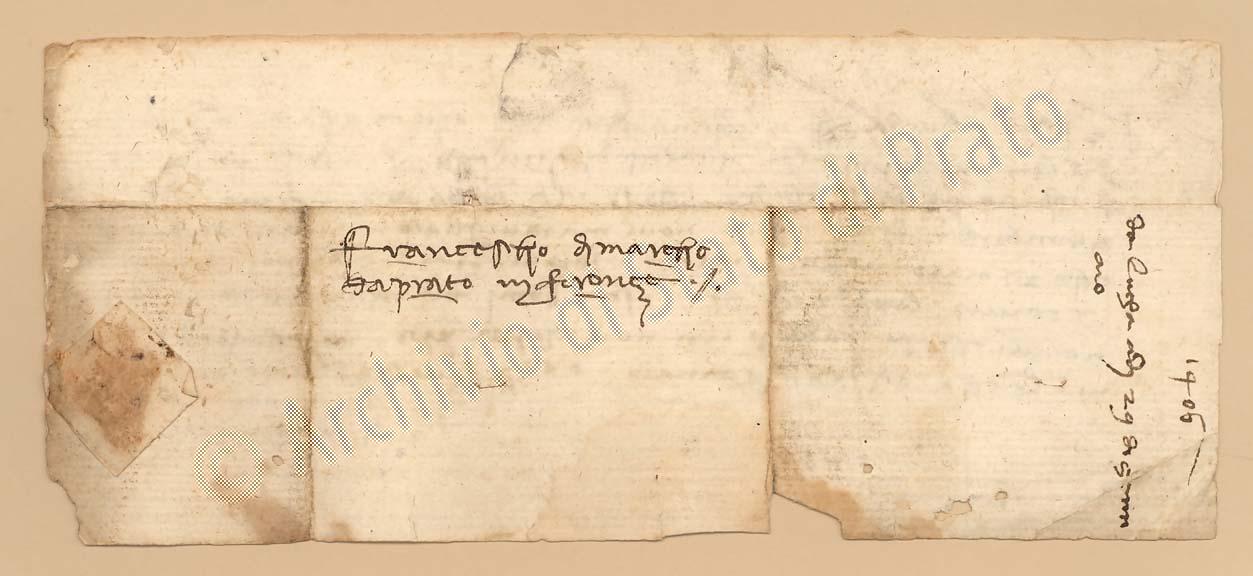 Francescho di marcho
da prato in firenze
da lucha adj 29 di genn
aio
1406
© Archivio di Stato di Prato